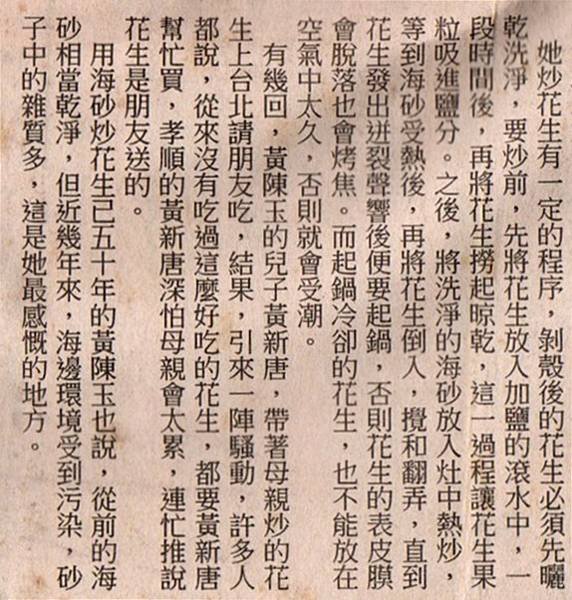 她炒花生有一定的程序，剝殼後的花生必須先曬
乾洗淨，要炒前，先將花生放入加鹽的滾水中，一
段時間後，再將花生撈起晾乾，這一過程讓花生果
粒吸進鹽分。之後，將洗淨的海砂放入灶中熱炒，
等到海砂受熱後，再將花生倒入，攪和翻弄，直到
花生發出迸裂聲響後便要起鍋，否則花生的表皮膜
會脫落也會烤焦。而起鍋冷卻的花生，也不能放在
空氣中太久，否則就會受潮。
有幾回，黃陳玉的兒子黃新唐，帶著母親炒的花
生上台北請朋友吃，結果，引來一陣騷動，許多人
都說，從來沒有吃過這麼好吃的花生，都要黃新唐
幫忙買，孝順的黃新唐深怕母親會太累，連忙推說
花生是朋友送的。
用海砂炒花生已五十年的黃陳玉也說，從前的海
砂相當乾淨，但近幾年來，海邊環境受到污染，砂
子中的雜質多，這是她最感慨的地方。